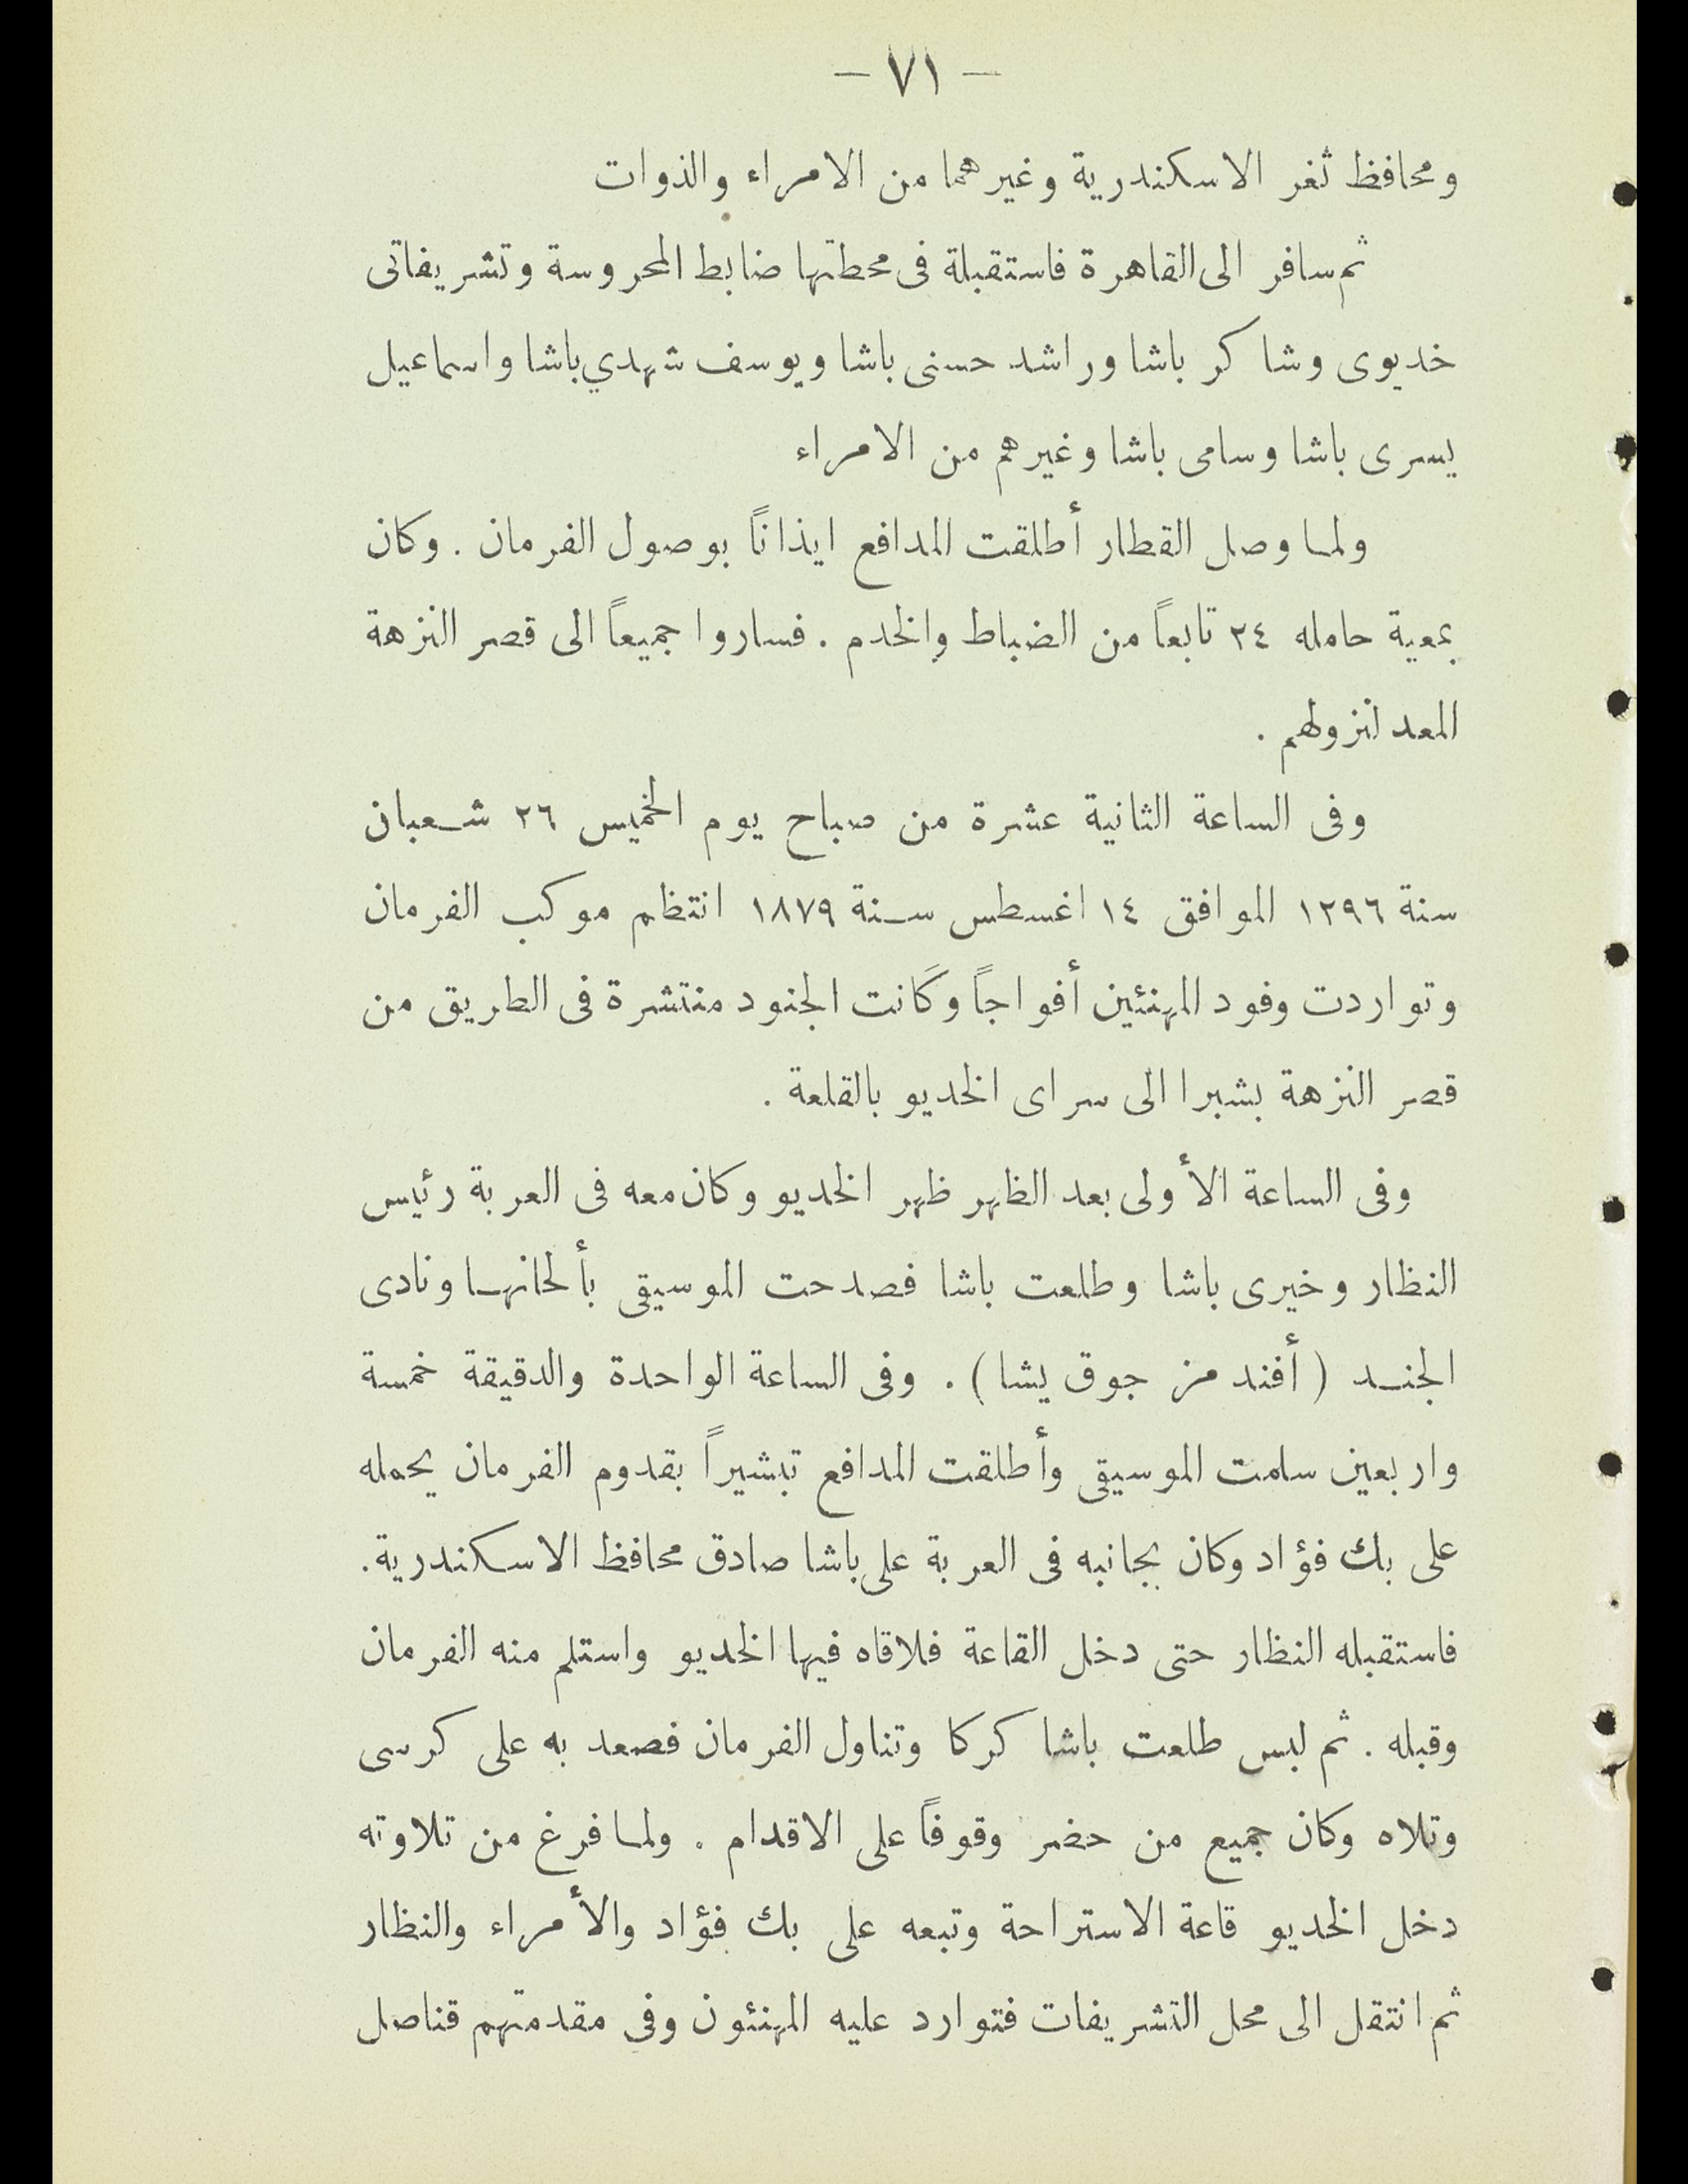 — ٧١ —
ومحافظ ثغر الاسكندرية وغيرهما من الامراء والذوات
ثم سافر الى القاهرة فاستقبلة فى محطتها ضابط المحروسة وتشريفاتى
خديوى وشاكر باشا وراشد حسنى باشا ويوسف شهدي باشا واسماعيل
يسرى باشا وسامى باشا وغيرهم من الامراء
ولما وصل القطار أطلقت المدافع ايذاناً بوصول الفرمان . وكان
بمعية حامله ٢٤ تابعاً من الضباط والخدم . فساروا جميعاً الى قصر النزهة
المعد لنزولهم .
وفى الساعة الثانية عشرة من صباح يوم الخميس ٢٦ شعبان
سنة ١٢٩٦ الموافق ١٤ اغسطس سنة ١٨٧٩ انتظم موكب الفرمان
وتواردت وفود المهنئين أفواجاً وكانت الجنود منتشرة فى الطريق من
قصر النزهة بشبرا الى سراى الخديو بالقلعة .
وفى الساعة الأولى بعد الظهر ظهر الخديو وكان معه فى العربة رئيس
النظار وخيرى باشا وطلعت باشا فصدحت الموسيقى بألحانها ونادى
الجند ( أفندمز جوق يشا ) . وفى الساعة الواحدة والدقيقة خمسة
واربعين سلمت الموسيقى وأطلقت المدافع تبشيراً بقدوم الفرمان يحمله
على بك فؤاد وكان بجانبه فى العربة على باشا صادق محافظ الاسكندرية.
فاستقبله النظار حتى دخل القاعة فلاقاه فيها الخديو واستلم منه الفرمان
وقبله . ثم لبس طلعت باشا كركا وتناول الفرمان فصعد به على كرسى
وتلاه وكان جميع من حضر وقوفاً على الاقدام . ولما فرغ من تلاوته
دخل الخديو قاعة الاستراحة وتبعه على بك فؤاد والأمراء والنظار
ثم انتقل الى محل التشريفات فتوارد عليه المهنئون وفى مقدمتهم قناصل